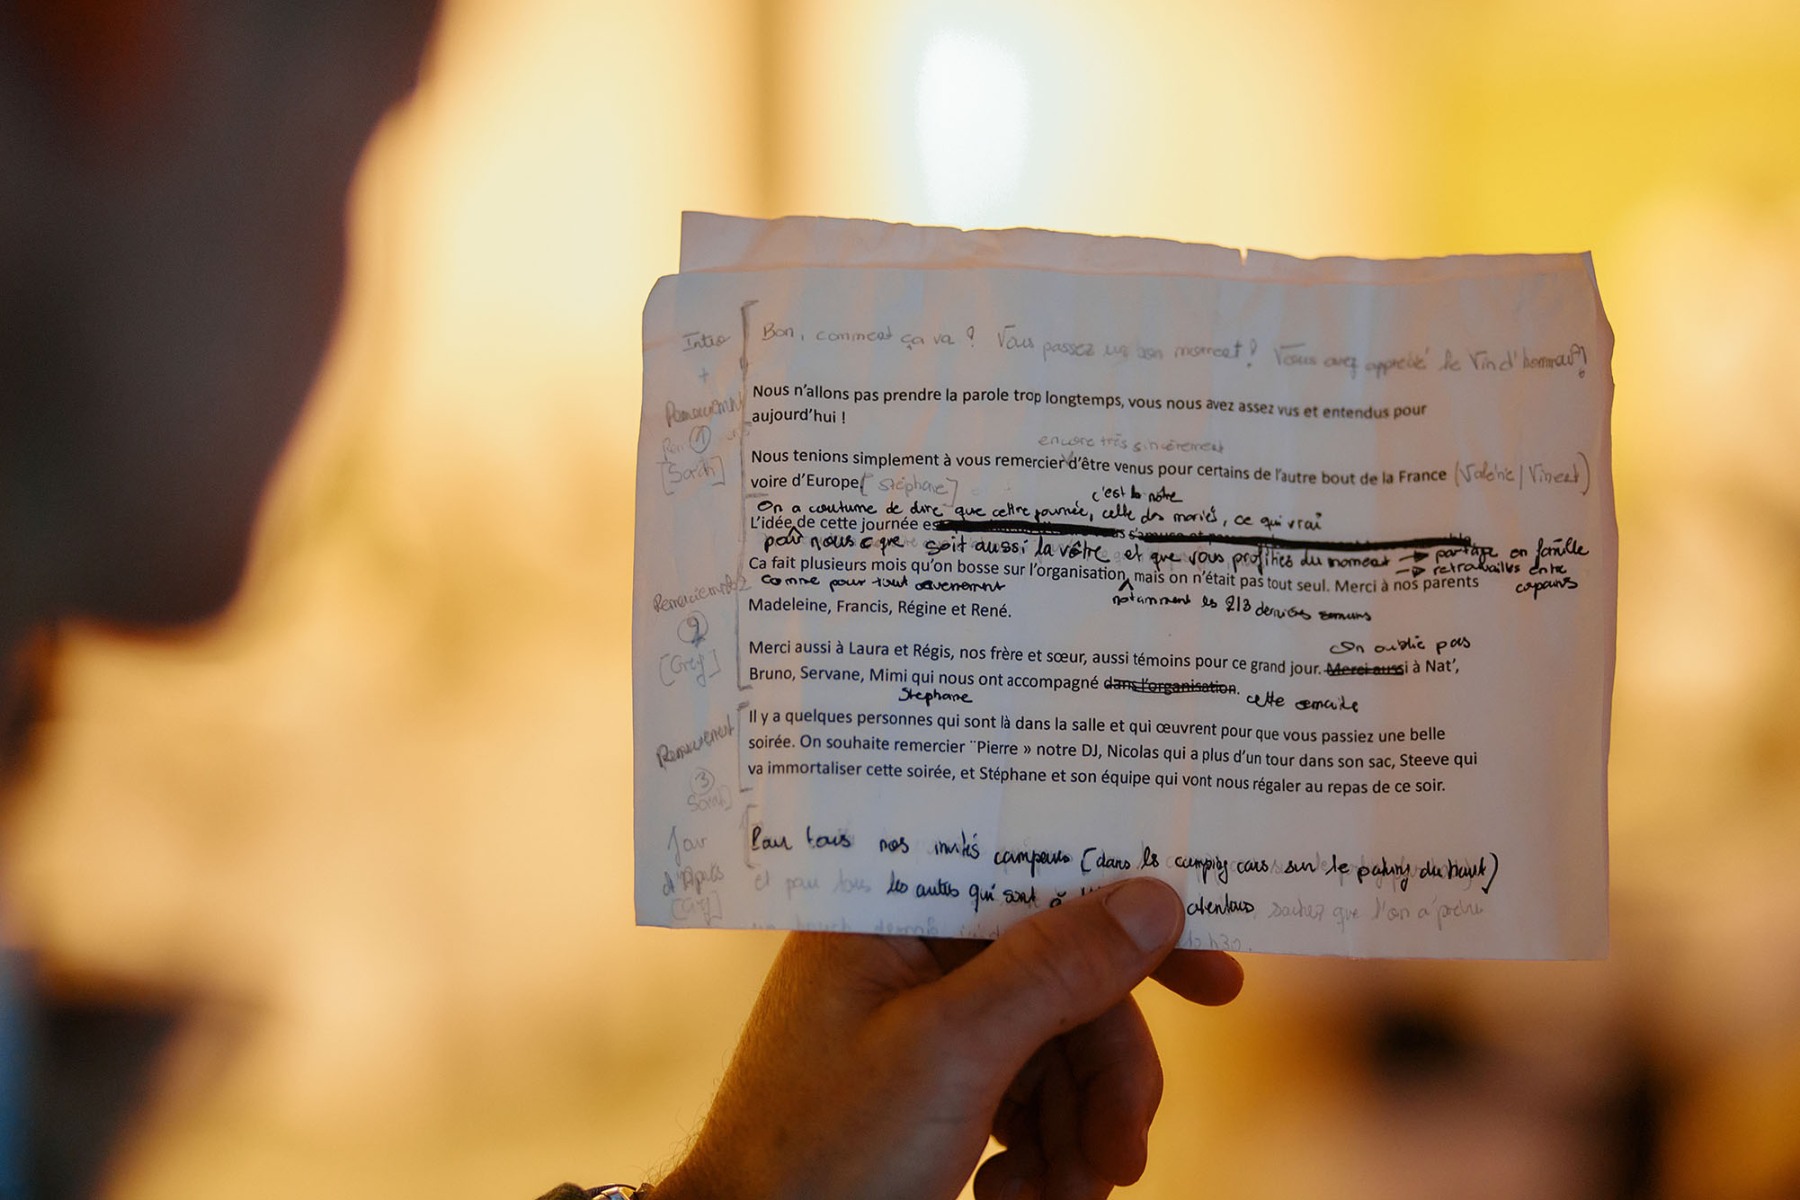 Intro
Bon, comment ça va ? Vous passez un bon moment ? Vous avez apprécié le Vin d'honneur ?
+
Remerciement
Nous n'allons pas prendre la parole trop longtemps, vous nous avez assez vus et entendus pour
aujourd'hui !
①
[Sarah]
encore très sincèrement
Nous tenions simplement à vous remercier d'être venus pour certains de l'autre bout de la France (Valérie / Vincent)
voire d'Europe [Stéphane]
c'est la nôtre
On a coutume de dire que cette journée, celle des mariés, ce qui vrai
L'idée de cette journée es
pour nous que soit aussi la vôtre et que vous profitiez du moment → partage en famille
→ retrouvailles entre
copains
Ca fait plusieurs mois qu'on bosse sur l'organisation, mais on n'était pas tout seul. Merci à nos parents
comme pour tout évenement
notamment les 2/3 dernières semaines
Remerciement 2
Madeleine, Francis, Régine et René.
②
[Greg]
On oublie pas
Merci aussi à Laura et Régis, nos frère et sœur, aussi témoins pour ce grand jour. Merci aussi à Nat',
Bruno, Servane, Mimi qui nous ont accompagné dans l'organisation. cette semaine
Stephane
Remerciement
③
Il y a quelques personnes qui sont là dans la salle et qui œuvrent pour que vous passiez une belle
soirée. On souhaite remercier ¨Pierre » notre DJ, Nicolas qui a plus d'un tour dans son sac, Steeve qui
va immortaliser cette soirée, et Stéphane et son équipe qui vont nous régaler au repas de ce soir.
Jour
d'Après
Pour tous nos invités campeurs (dans les camping cars sur le parking du haut)
et pour tous les autres qui sont à alentours sachez que l'on a prévu